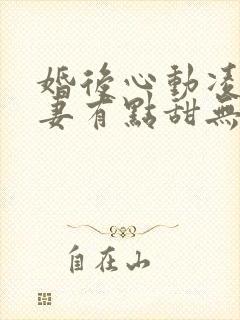 婚後心動凌
妻有點甜無
自在山